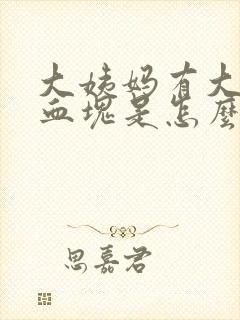 大姨妈有大
血块是怎麽
思嘉君